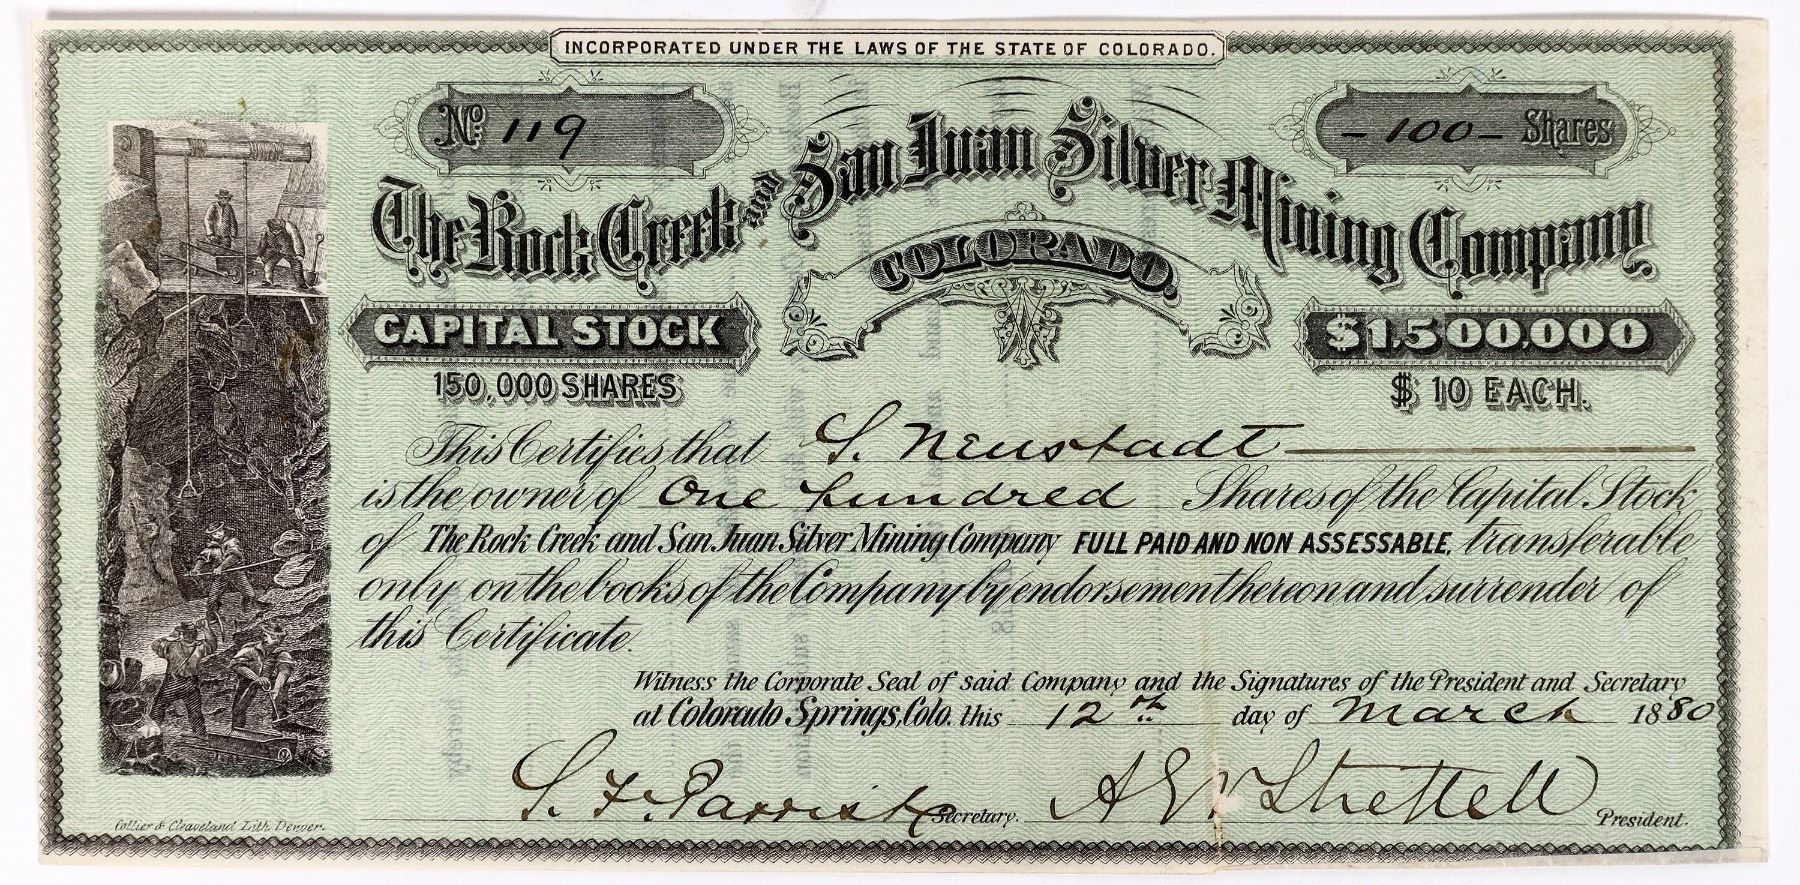 INCORPORATED UNDER THE LAWS OF THE STATE OF COLORADO.
No 119
- 100 - Shares
The Rock Creek and San Juan Silver Mining Company
COLORADO.
CAPITAL STOCK
$1,500,000
150,000 SHARES
$10 EACH.
This Certifies that S. Neustadt
is the owner of One hundred Shares of the Capital Stock
of The Rock Creek and San Juan Silver Mining Company FULL PAID AND NON ASSESSABLE, transferable
only on the books of the Company by endorsement hereon and surrender of
this Certificate.
Witness the Corporate Seal of said Company and the Signatures of the President and Secretary
at Colorado Springs, Colo. this 12th day of March 1880
S. F. Parrish Secretary.
A E W Shettell President.
Collier & Cleaveland Lith. Denver.